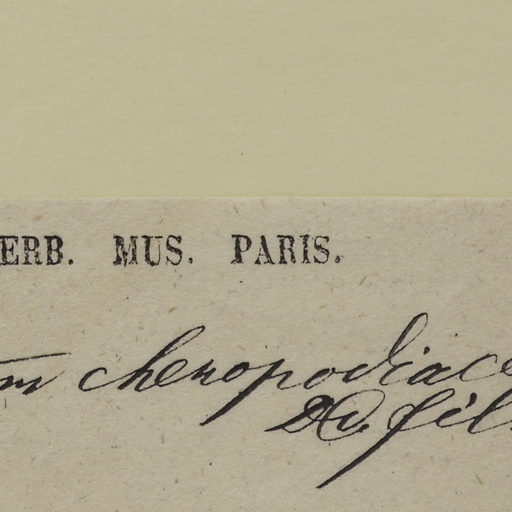 ERB. MUS. PARIS.
m chenopodiace
DC. fil